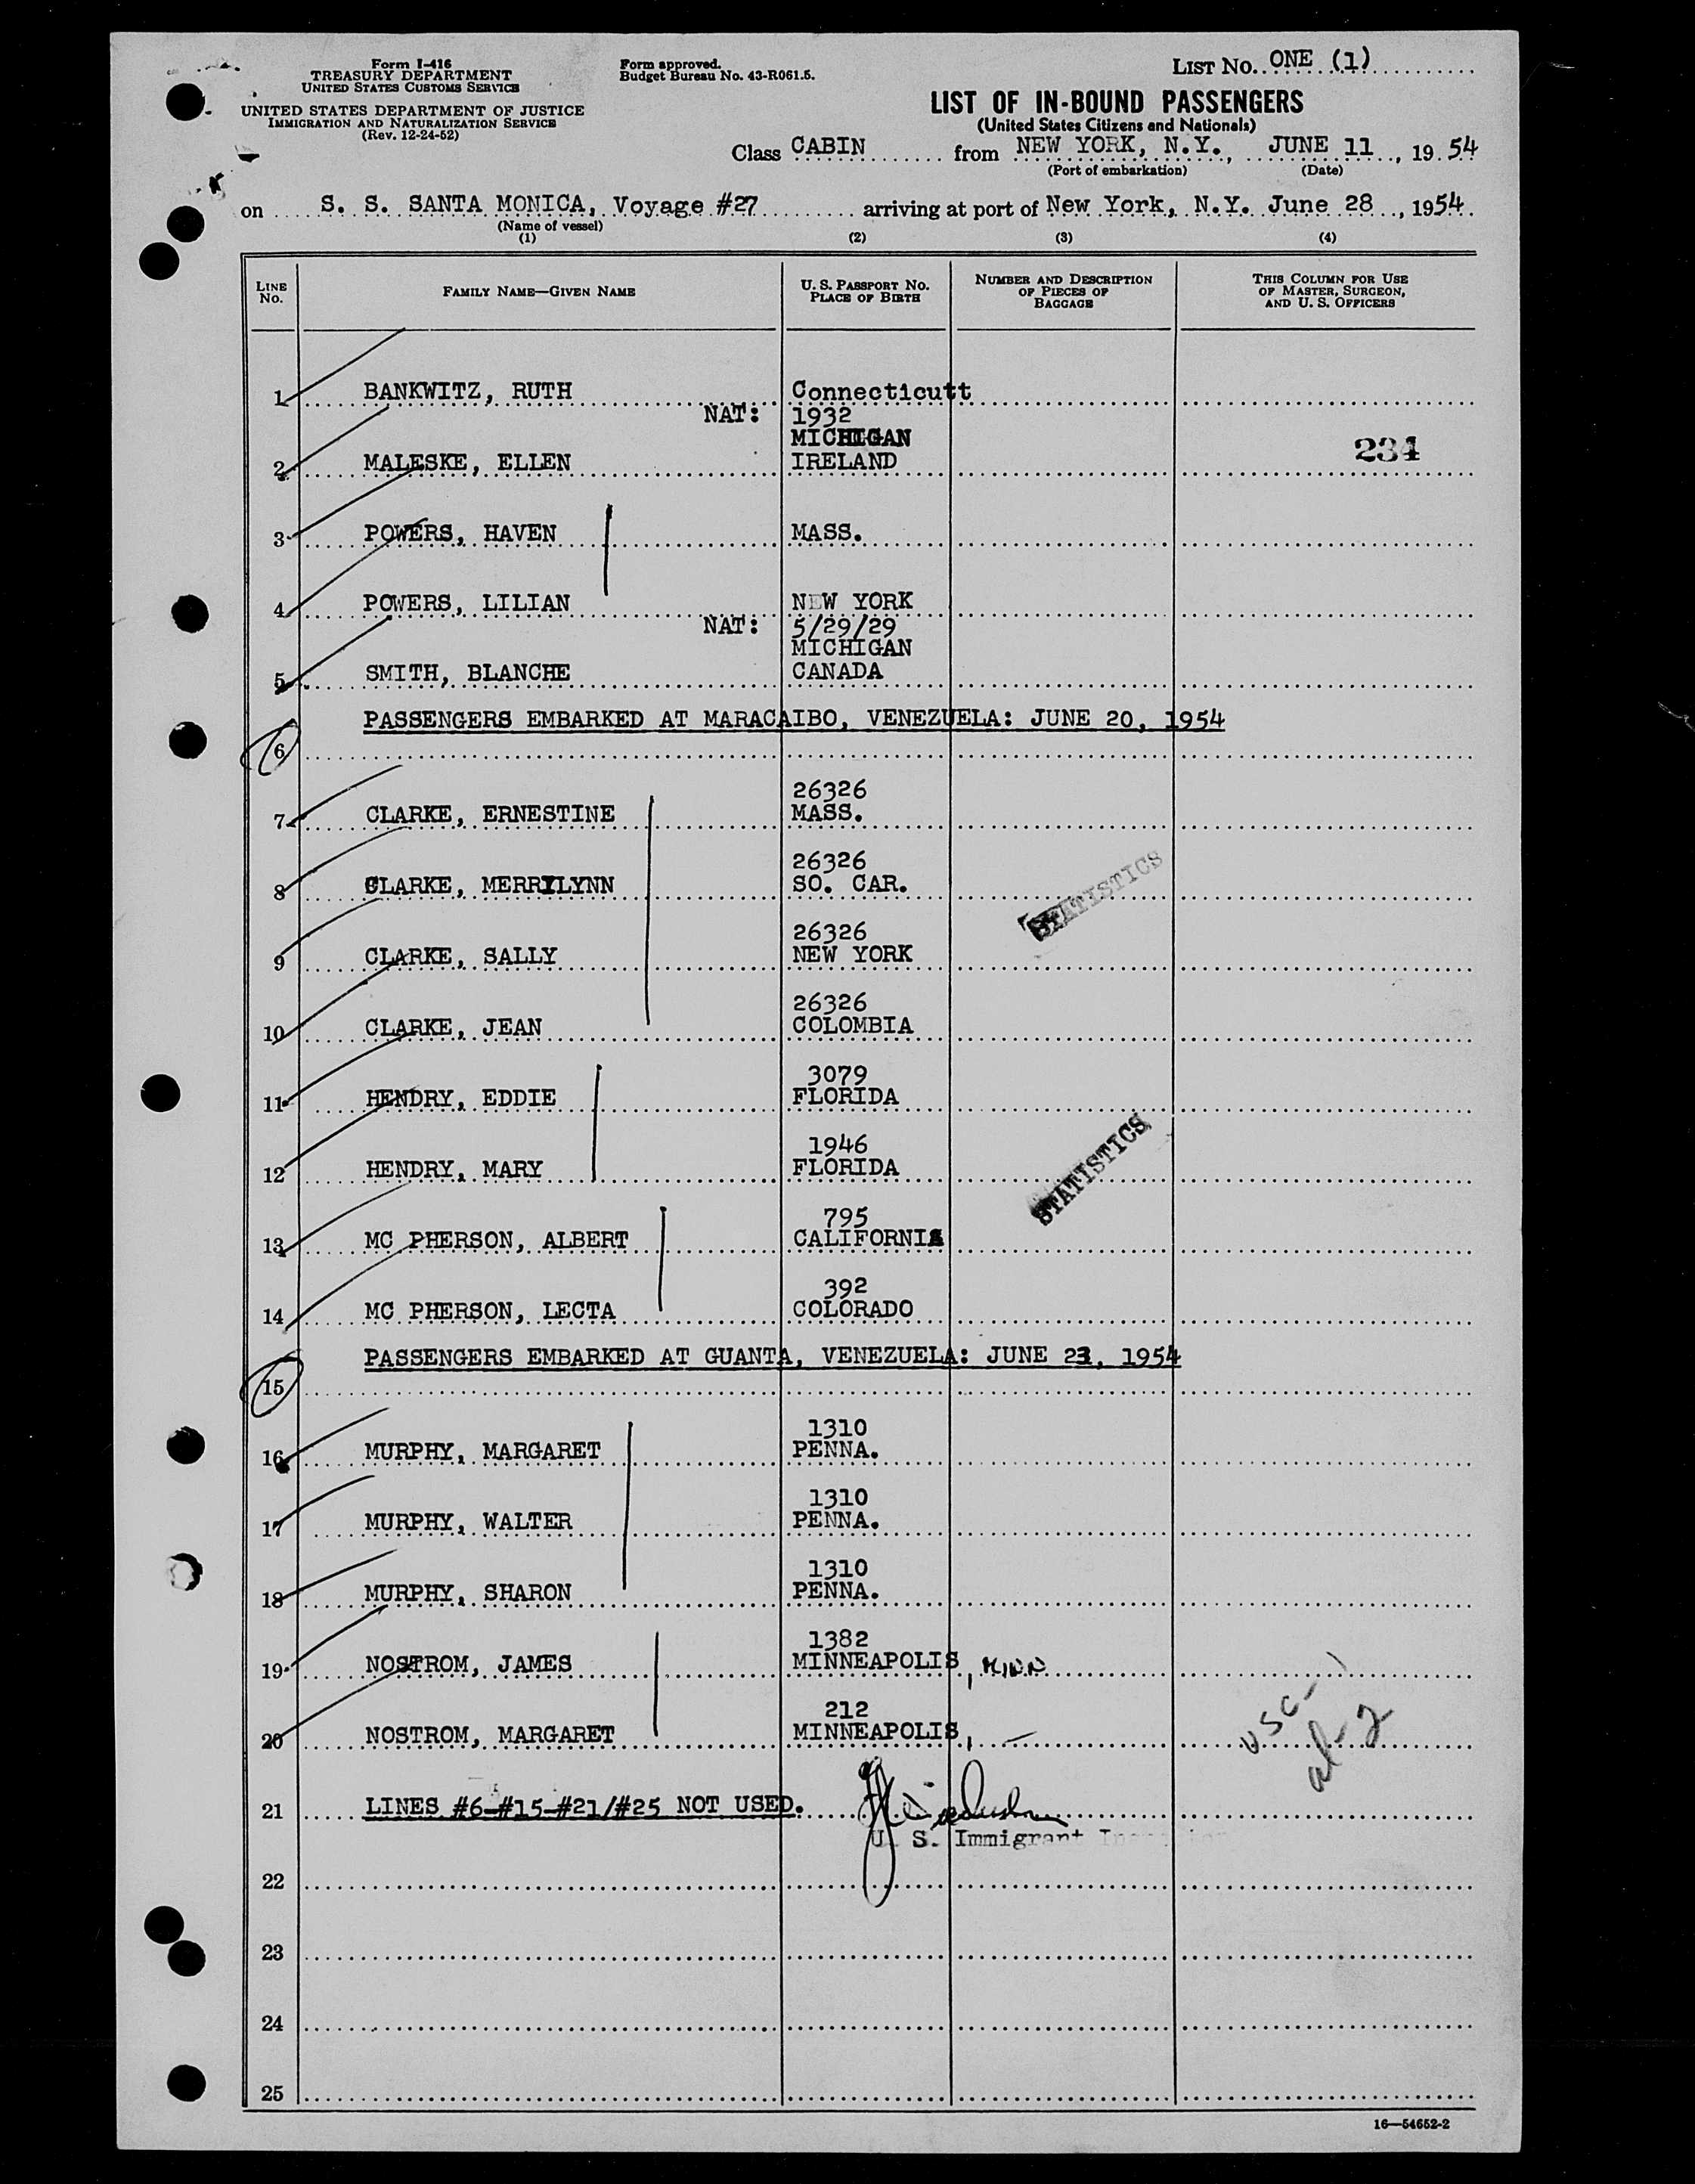 Form I-416
TREASURY DEPARTMENT
UNITED STATES CUSTOMS SERVICE
UNITED STATES DEPARTMENT OF JUSTICE
IMMIGRATION AND NATURALIZATION SERVICE
(Rev. 12-24-52)
Form approved.
Budget Bureau No. 43-R061.5.
LIST No. ONE (1)
LIST OF IN-BOUND PASSENGERS
(United States Citizens and Nationals)
Class CABIN from NEW YORK, N.Y., JUNE 11, 1954
(Port of embarkation) (Date)
on S. S. SANTA MONICA, Voyage #27 arriving at port of New York, N.Y. June 28, 1954.
(Name of vessel)
(1) (2) (3) (4)
LINE No. FAMILY NAME—GIVEN NAME U. S. PASSPORT NO. PLACE OF BIRTH NUMBER AND DESCRIPTION OF PIECES OF BAGGAGE THIS COLUMN FOR USE OF MASTER, SURGEON, AND U. S. OFFICERS
1 BANKWITZ, RUTH Connecticutt
NAT: 1932
MICHIGAN
2 MALESKE, ELLEN IRELAND 234
3 POWERS, HAVEN MASS.
4 POWERS, LILIAN NEW YORK
NAT: 5/29/29
MICHIGAN
5 SMITH, BLANCHE CANADA
PASSENGERS EMBARKED AT MARACAIBO, VENEZUELA: JUNE 20, 1954
6
26326
7 CLARKE, ERNESTINE MASS.
26326
8 CLARKE, MERRILYNN SO. CAR.
STATISTICS
26326
9 CLARKE, SALLY NEW YORK
26326
10 CLARKE, JEAN COLOMBIA
3079
11 HENDRY, EDDIE FLORIDA
1946
12 HENDRY, MARY FLORIDA
STATISTICS
795
13 MC PHERSON, ALBERT CALIFORNIA
392
14 MC PHERSON, LECTA COLORADO
PASSENGERS EMBARKED AT GUANTA, VENEZUELA: JUNE 23, 1954
15
1310
16 MURPHY, MARGARET PENNA.
1310
17 MURPHY, WALTER PENNA.
1310
18 MURPHY, SHARON PENNA.
1382
19 NOSTROM, JAMES MINNEAPOLIS, MINN
212
20 NOSTROM, MARGARET MINNEAPOLIS,
USC
21 LINES #6-#15-#21/#25 NOT USED.
U. S. Immigrant
22
23
24
25
16—54652-2